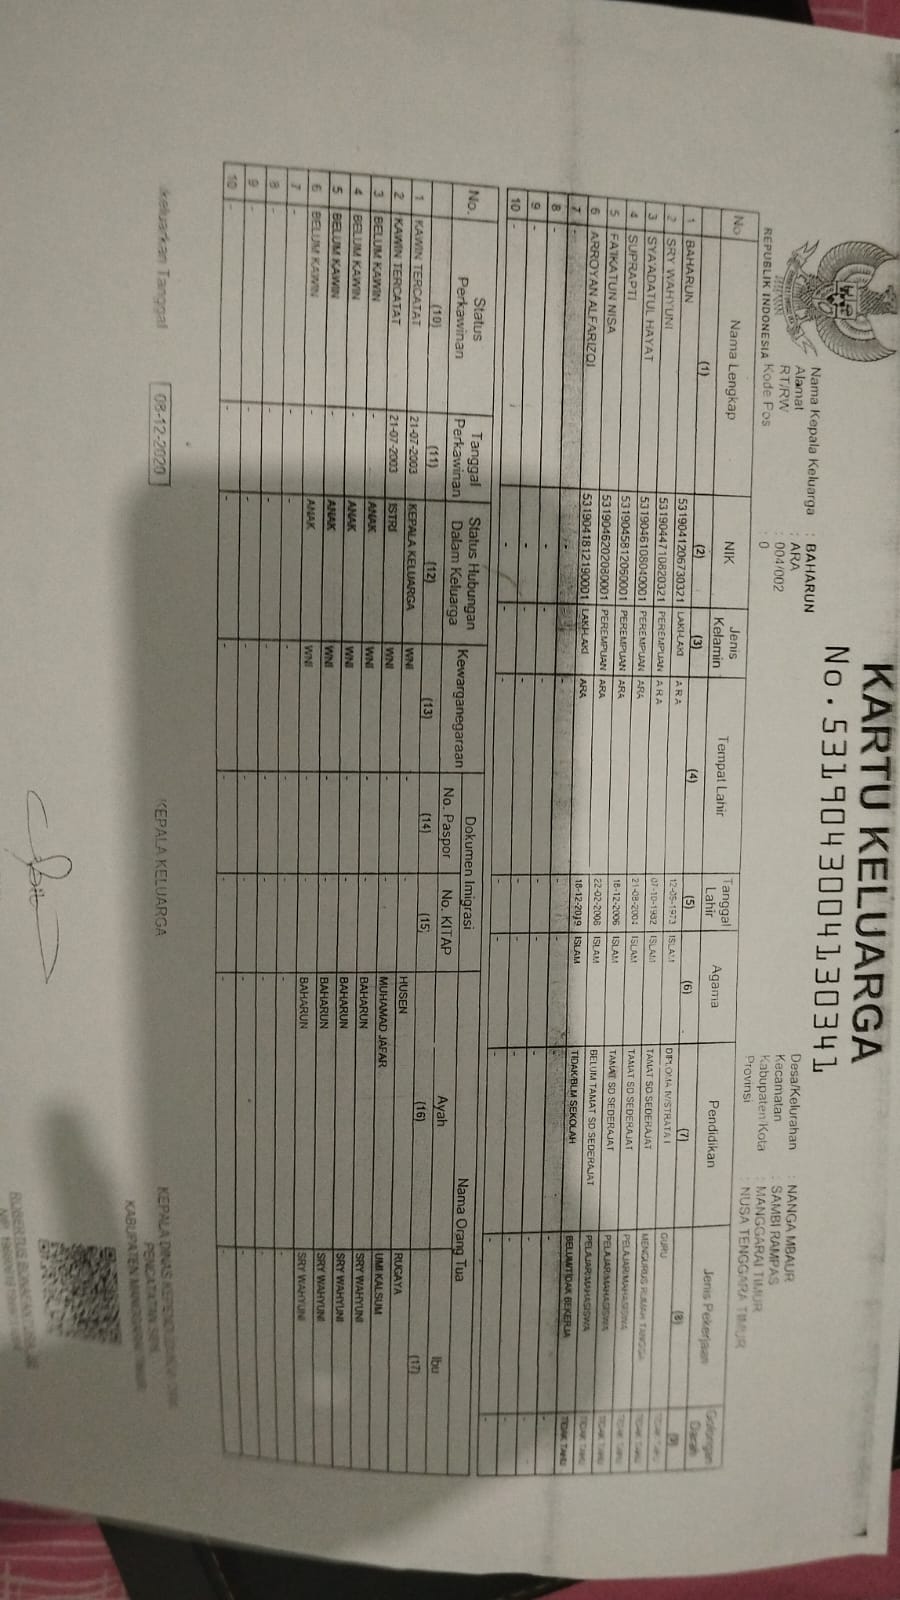 KARTU KELUARGA
No. 5319043004130341
REPUBLIK INDONESIA
Nama Kepala Keluarga : BAHARUN
Alamat : ARA
RT/RW : 004/002
Kode Pos : 0
Desa/Kelurahan : NANGA MBAUR
Kecamatan : SAMBI RAMPAS
Kabupaten/Kota : MANGGARAI TIMUR
Provinsi : NUSA TENGGARA TIMUR
No Nama Lengkap NIK Jenis Kelamin Tempat Lahir Tanggal Lahir Agama Pendidikan Jenis Pekerjaan Golongan Darah
(1) (2) (3) (4) (5) (6) (7) (8) (9)
1 BAHARUN 5319041206730321 LAKI-LAKI ARA 12-06-1973 ISLAM DIPLOMA IV/STRATA I GURU TIDAK TAHU
2 SRY WAHYUNI 5319044710820321 PEREMPUAN ARA 07-10-1982 ISLAM TAMAT SD SEDERAJAT MENGURUS RUMAH TANGGA TIDAK TAHU
3 SYA'ADATUL HAYAT 5319046108040001 PEREMPUAN ARA 21-08-2004 ISLAM TAMAT SD SEDERAJAT PELAJAR/MAHASISWA TIDAK TAHU
4 SUPRAPTI 5319045812060001 PEREMPUAN ARA 18-12-2006 ISLAM TAMAT SD SEDERAJAT PELAJAR/MAHASISWA TIDAK TAHU
5 FATKATUN NISA 5319046202080001 PEREMPUAN ARA 22-02-2008 ISLAM BELUM TAMAT SD SEDERAJAT PELAJAR/MAHASISWA TIDAK TAHU
6 ARROYAN ALFARIZQI 5319041812190001 LAKI-LAKI ARA 18-12-2019 ISLAM TIDAK/BLM SEKOLAH BELUM/TIDAK BEKERJA TIDAK TAHU
7 - - - - - - - -
8 - - - - - - - -
9 - - - - - - - -
10 - - - - - - - -
No. Status Perkawinan Tanggal Perkawinan Status Hubungan Dalam Keluarga Kewarganegaraan Dokumen Imigrasi Nama Orang Tua
No. Paspor No. KITAP Ayah Ibu
(10) (11) (12) (13) (14) (15) (16) (17)
1 KAWIN TERCATAT 21-07-2003 KEPALA KELUARGA WNI - - HUSEN RUGAYA
2 KAWIN TERCATAT 21-07-2003 ISTRI WNI - - MUHAMAD JAFAR UMI KALSUM
3 BELUM KAWIN - ANAK WNI - - BAHARUN SRY WAHYUNI
4 BELUM KAWIN - ANAK WNI - - BAHARUN SRY WAHYUNI
5 BELUM KAWIN - ANAK WNI - - BAHARUN SRY WAHYUNI
6 BELUM KAWIN - ANAK WNI - - BAHARUN SRY WAHYUNI
7 - - - - - - - -
8 - - - - - - - -
9 - - - - - - - -
10 - - - - - - - -
keluarkan Tanggal 08-12-2020
KEPALA KELUARGA
KEPALA DINAS KEPENDUDUKAN DAN
PENCATATAN SIPIL
KABUPATEN MANGGARAI TIMUR